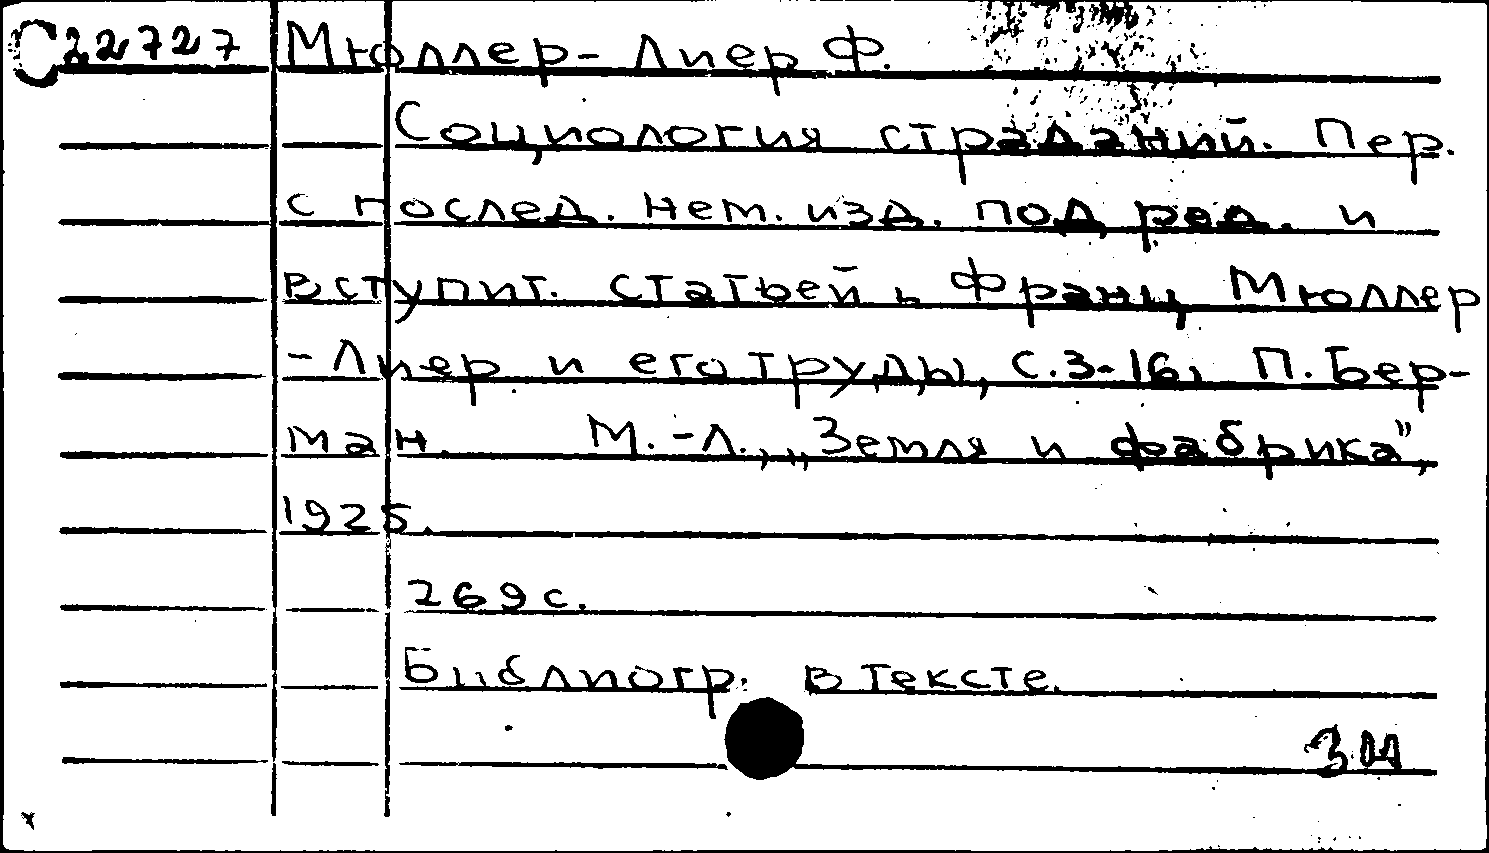 С22727 Мюллер-Лиер Ф.
Социология страданий. Пер.
с послед. нем. изд. под ред. и
вступит. статьей ь Франц Мюллер
-Лиер и его труды, с.3-16, П. Бер-
ман. М.-Л., „Земля и фабрика",
1925.
269 с.
Библиогр. в тексте.